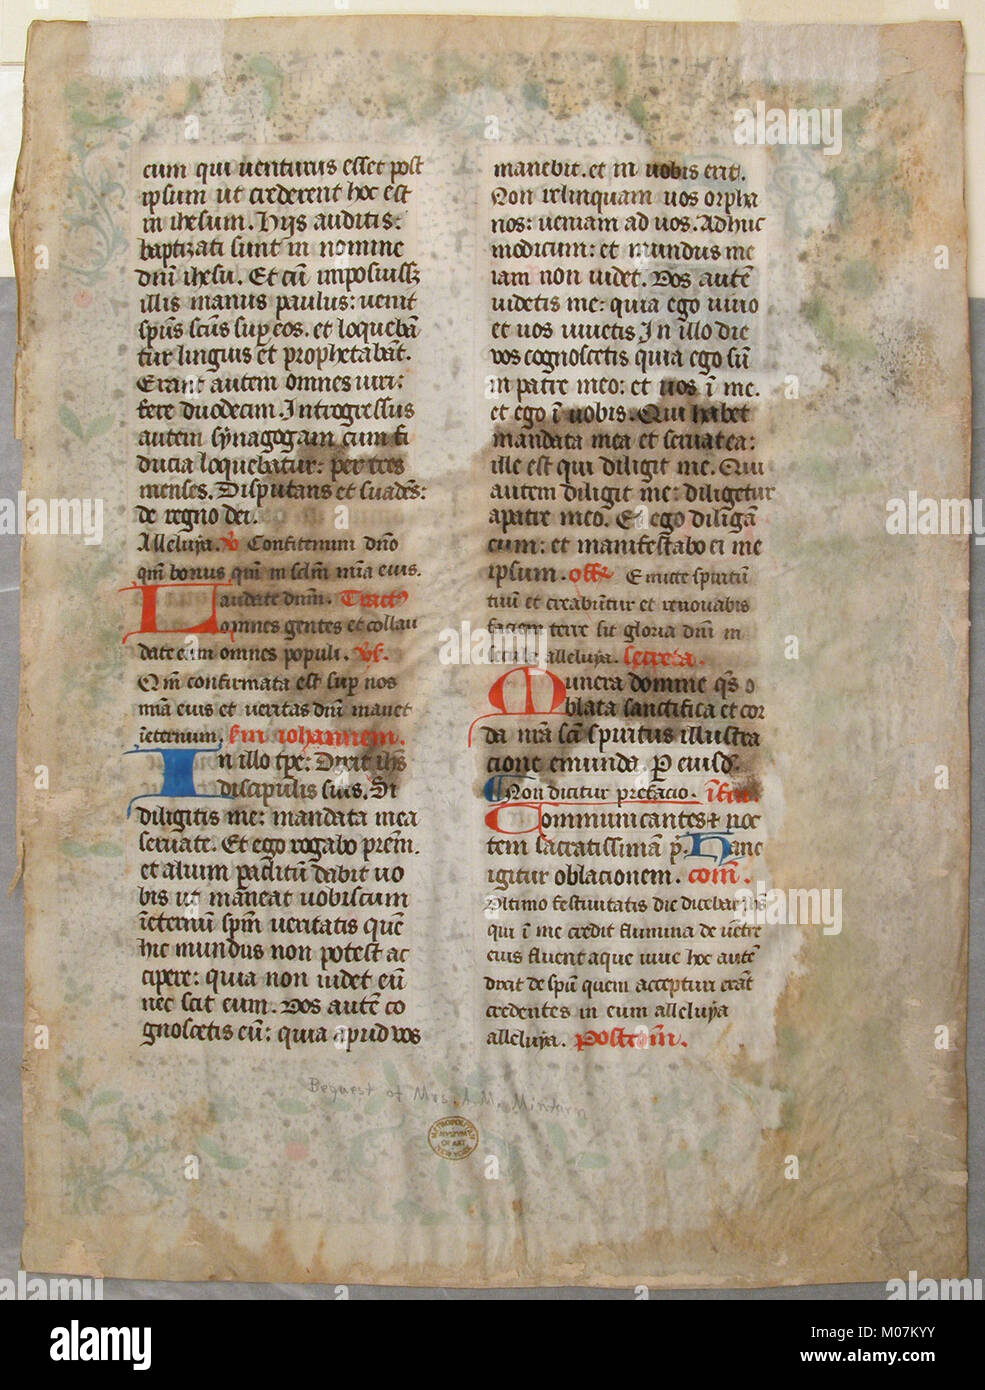 eum qui venturus esset post
ipsum ut crederent hoc est
in ihesum. Hijs auditis:
baptizati sunt in nomine
dnī ihesu. Et cū imposuiss₃
illis manus paulus: venit
spūs scūs sup eos. et loquebā
tur linguis et prophetabāt.
Erant autem omnes viri:
fere duodecim. Introgressus
autem synagogam cum fi
ducia loquebatur: per tres
menses. Disputans et suadēs:
de regno dei.
Alleluya. v̄ Confitemini dn̄o
qm̄ bonus qm̄ in sclm̄ mīa eius.
Laudate dnm̄. Tractꝰ
omnes gentes et collau
date eum omnes populi. v̄s.
Qm̄ confirmata est sup nos
mīa eius et veritas dnī manet
īeternum. Em̄ iohannem.
In illo tpe: Dixit ihs̄
discipulis suis. Si
diligitis me: mandata mea
servate. Et ego rogabo prēm.
et alium paclitū dabit vo
bis ut maneat vobiscum
īeternū spm̄ veritatis quē
hic mundus non potest ac
cipere: quia non videt eū
nec scit eum. Vos autē co
gnoscetis eū: quia apud vos
manebit. et in vobis erit.
Non relinquam vos orpha
nos: veniam ad vos. Adhuc
modicum: et mundus me
iam non videt. Vos autē
videtis me: quia ego vivo
et vos vivetis In illo die
vos cognoscetis quia ego sū
in patre meo: et vos ī me.
et ego ī vobis. Qui habet
mandata mea et servat ea:
ille est qui diligit me. Qui
autem diligit me: diligetur
a patre meo. Et ego diligā
eum: et manifestabo ei me
ipsum. off. Emitte spiritū
tuū et creabūtur et renovabis
faciem terre sit gloria dnī in
secula alleluya. secreta.
Munera domine qs̄ o
blata sanctifica et cor
da nr̄a sc̄i spiritus illustra
cione emunda. P eiusd.
Non dicitur prefacio. īfra
Communicantes et noc
tem sacratissimā p̄. Hanc
igitur oblacionem. com̄.
Ultimo festivitatis die dicebat ihs̄
qui ī me credit flumina de vētre
eius fluent aque vive hoc autē
dixit de spū quem accepturi erāt
credentes in eum alleluya
alleluya. Postcom̄.
Bequest of Mrs. A. M. Minturn
METROPOLITAN
MUSEUM
OF ART
NEW YORK
alamy
M07KYY
www.alamy.com